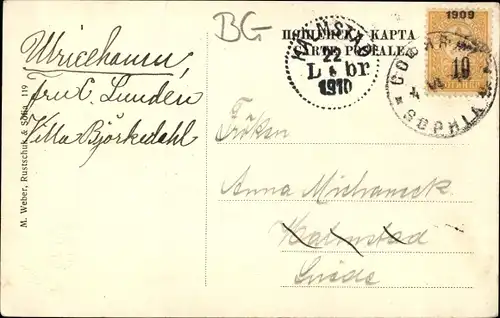 BG
ПОЩЕНСКА КАРТА
CARTE POSTALE
1909
10
HALMSTAD
22
L br
1910
SOPHIA
Ulricehamn,
Fru C. Lunden
Villa Björkedahl
Fröken
Anna Michaneck
Halmstad
Suède
M. Weber, Rustschuk & Sofia 119